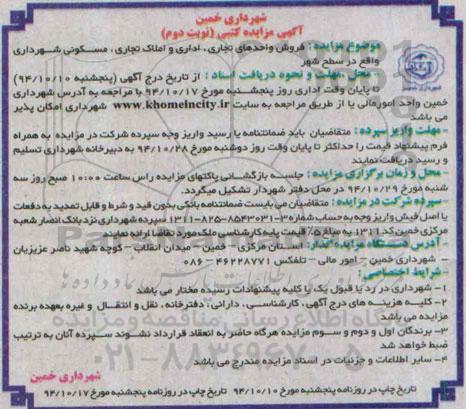 شهرداری خمین
آگهی مزایده کتبی (نوبت دوم)
موضوع مزایده: فروش واحدهای تجاری، اداری و املاک تجاری، مسکونی شهرداری
واقع در سطح شهر
- محل، مهلت و نحوه دریافت اسناد: از تاریخ درج آگهی (پنجشنبه ۹۴/۱۰/۱۰)
تا پایان وقت اداری روز پنجشنبه مورخ ۹۴/۱۰/۱۷ با مراجعه به آدرس شهرداری
خمین واحد امورمالی یا از طریق مراجعه به سایت www.khomeincity.ir شهرداری امکان پذیر
می باشد
- مهلت واریز سپرده: متقاضیان باید ضمانتنامه یا رسید واریز وجه سپرده شرکت در مزایده به همراه
فرم پیشنهاد قیمت را حداکثر تا پایان وقت روز دوشنبه مورخ ۹۴/۱۰/۲۸ به دبیرخانه شهرداری تسلیم
و رسید دریافت نمایند
- محل و زمان برگزاری مزایده: جلسه بازگشائی پاکتهای مزایده راس ساعت ۱۰:۰۰ صبح روز سه
شنبه مورخ ۹۴/۱۰/۲۹ در محل دفتر شهردار تشکیل میگردد.
- سپرده شرکت در مزایده: متقاضیان می بایست ضمانتنامه بانکی بدون قید و شرط و قابل تمدید به دفعات
یا اصل فیش واریز وجه به حساب شماره ۳-۸۵۴۳۰۳۱-۸۲۵-۱۳۱۱ سپرده شهرداری نزد بانک انصار شعبه
مرکزی خمین کد ۱۳۱۱ به مبلغ ۵٪ قیمت پایه کارشناسی ملک مورد تقاضا ارائه نمایند
- آدرس دستگاه مزایده گذار: استان مرکزی - خمین - میدان انقلاب - کوچه شهید ناصر عزیزیان
- شهرداری خمین - امور مالی - تلفکس ۴۶۲۲۸۷۷۱-۰۸۶
- شرایط اختصاصی:
۱- شهرداری در رد یا قبول یک یا کلیه پیشنهادات رسیده مختار می باشد
۲- کلیه هزینه های درج آگهی، کارشناسی، دارائی، دفترخانه، نقل و انتقال و غیره بعهده برنده
مزایده می باشد
۳- برندگان اول و دوم و سوم مزایده هرگاه حاضر به انعقاد قرارداد نشوند سپرده آنان به ترتیب
ضبط خواهد شد
۴- سایر اطلاعات و جزئیات در اسناد مزایده مندرج می باشد
شهرداری خمین
تاریخ چاپ در روزنامه پنجشنبه مورخ ۹۴/۱۰/۱۰ تاریخ چاپ در روزنامه پنجشنبه مورخ ۹۴/۱۰/۱۷